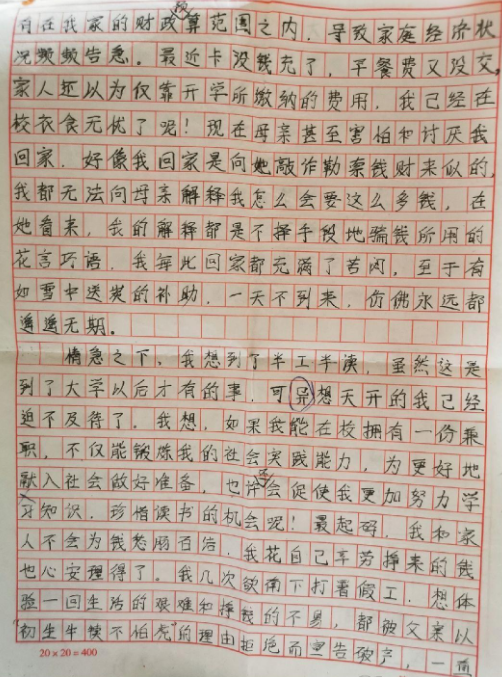 有在我家的财政预算范围之内，导致家庭经济状
况频频告急。最近卡没钱充了，早餐费又没交，
家人还以为仅靠开学所缴纳的费用，我已经在
校衣食无忧了呢！现在母亲甚至害怕和讨厌我
回家，好像我回家是向她敲诈勒索钱财来似的，
我都无法向母亲解释我怎么会要这么多钱，在
她看来，我的解释都是不择手段地骗钱所用的
花言巧语，我每此回家都充满了苦闷，至于有
如雪中送炭的补助，一天不到来，仿佛永远都
遥遥无期。
情急之下，我想到了半工半读，虽然这是
到了大学以后才有的事，可异想天开的我已经
迫不及待了。我想，如果我能在校拥有一份兼
职，不仅能锻炼我的社会实践能力，为更好地
融入社会做好准备，也许还会促使我更加努力学
习知识，珍惜读书的机会呢！最起码，我和家
人不会为钱愁肠百结，我花自己辛劳挣来的钱
也心安理得了。我几次欲南下打暑假工，想体
验一回生活的艰难和挣钱的不易，都被父亲以
“初生牛犊不怕虎”的理由拒绝而宣告破产，一
20×20=400